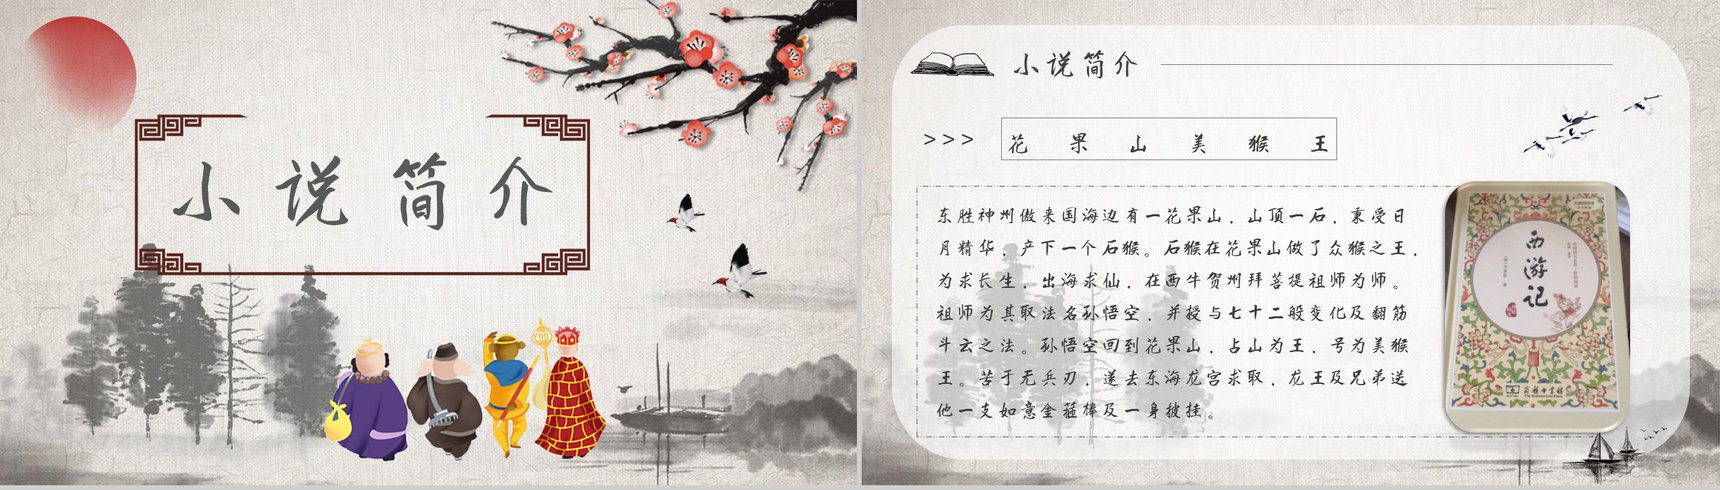 小说简介
小说简介
>>> 花果山美猴王
东胜神州傲来国海边有一花果山，山顶一石，秉受日
月精华，产下一个石猴。石猴在花果山做了众猴之王，
为求长生，出海求仙，在西牛贺州拜菩提祖师为师。
祖师为其取法名孙悟空，并授与七十二般变化及翻筋
斗云之法。孙悟空回到花果山，占山为王，号为美猴
王。苦于无兵刃，遂去东海龙宫求取，龙王及兄弟送
他一支如意金箍棒及一身披挂。
西游记
商务印书馆
The Commercial Press